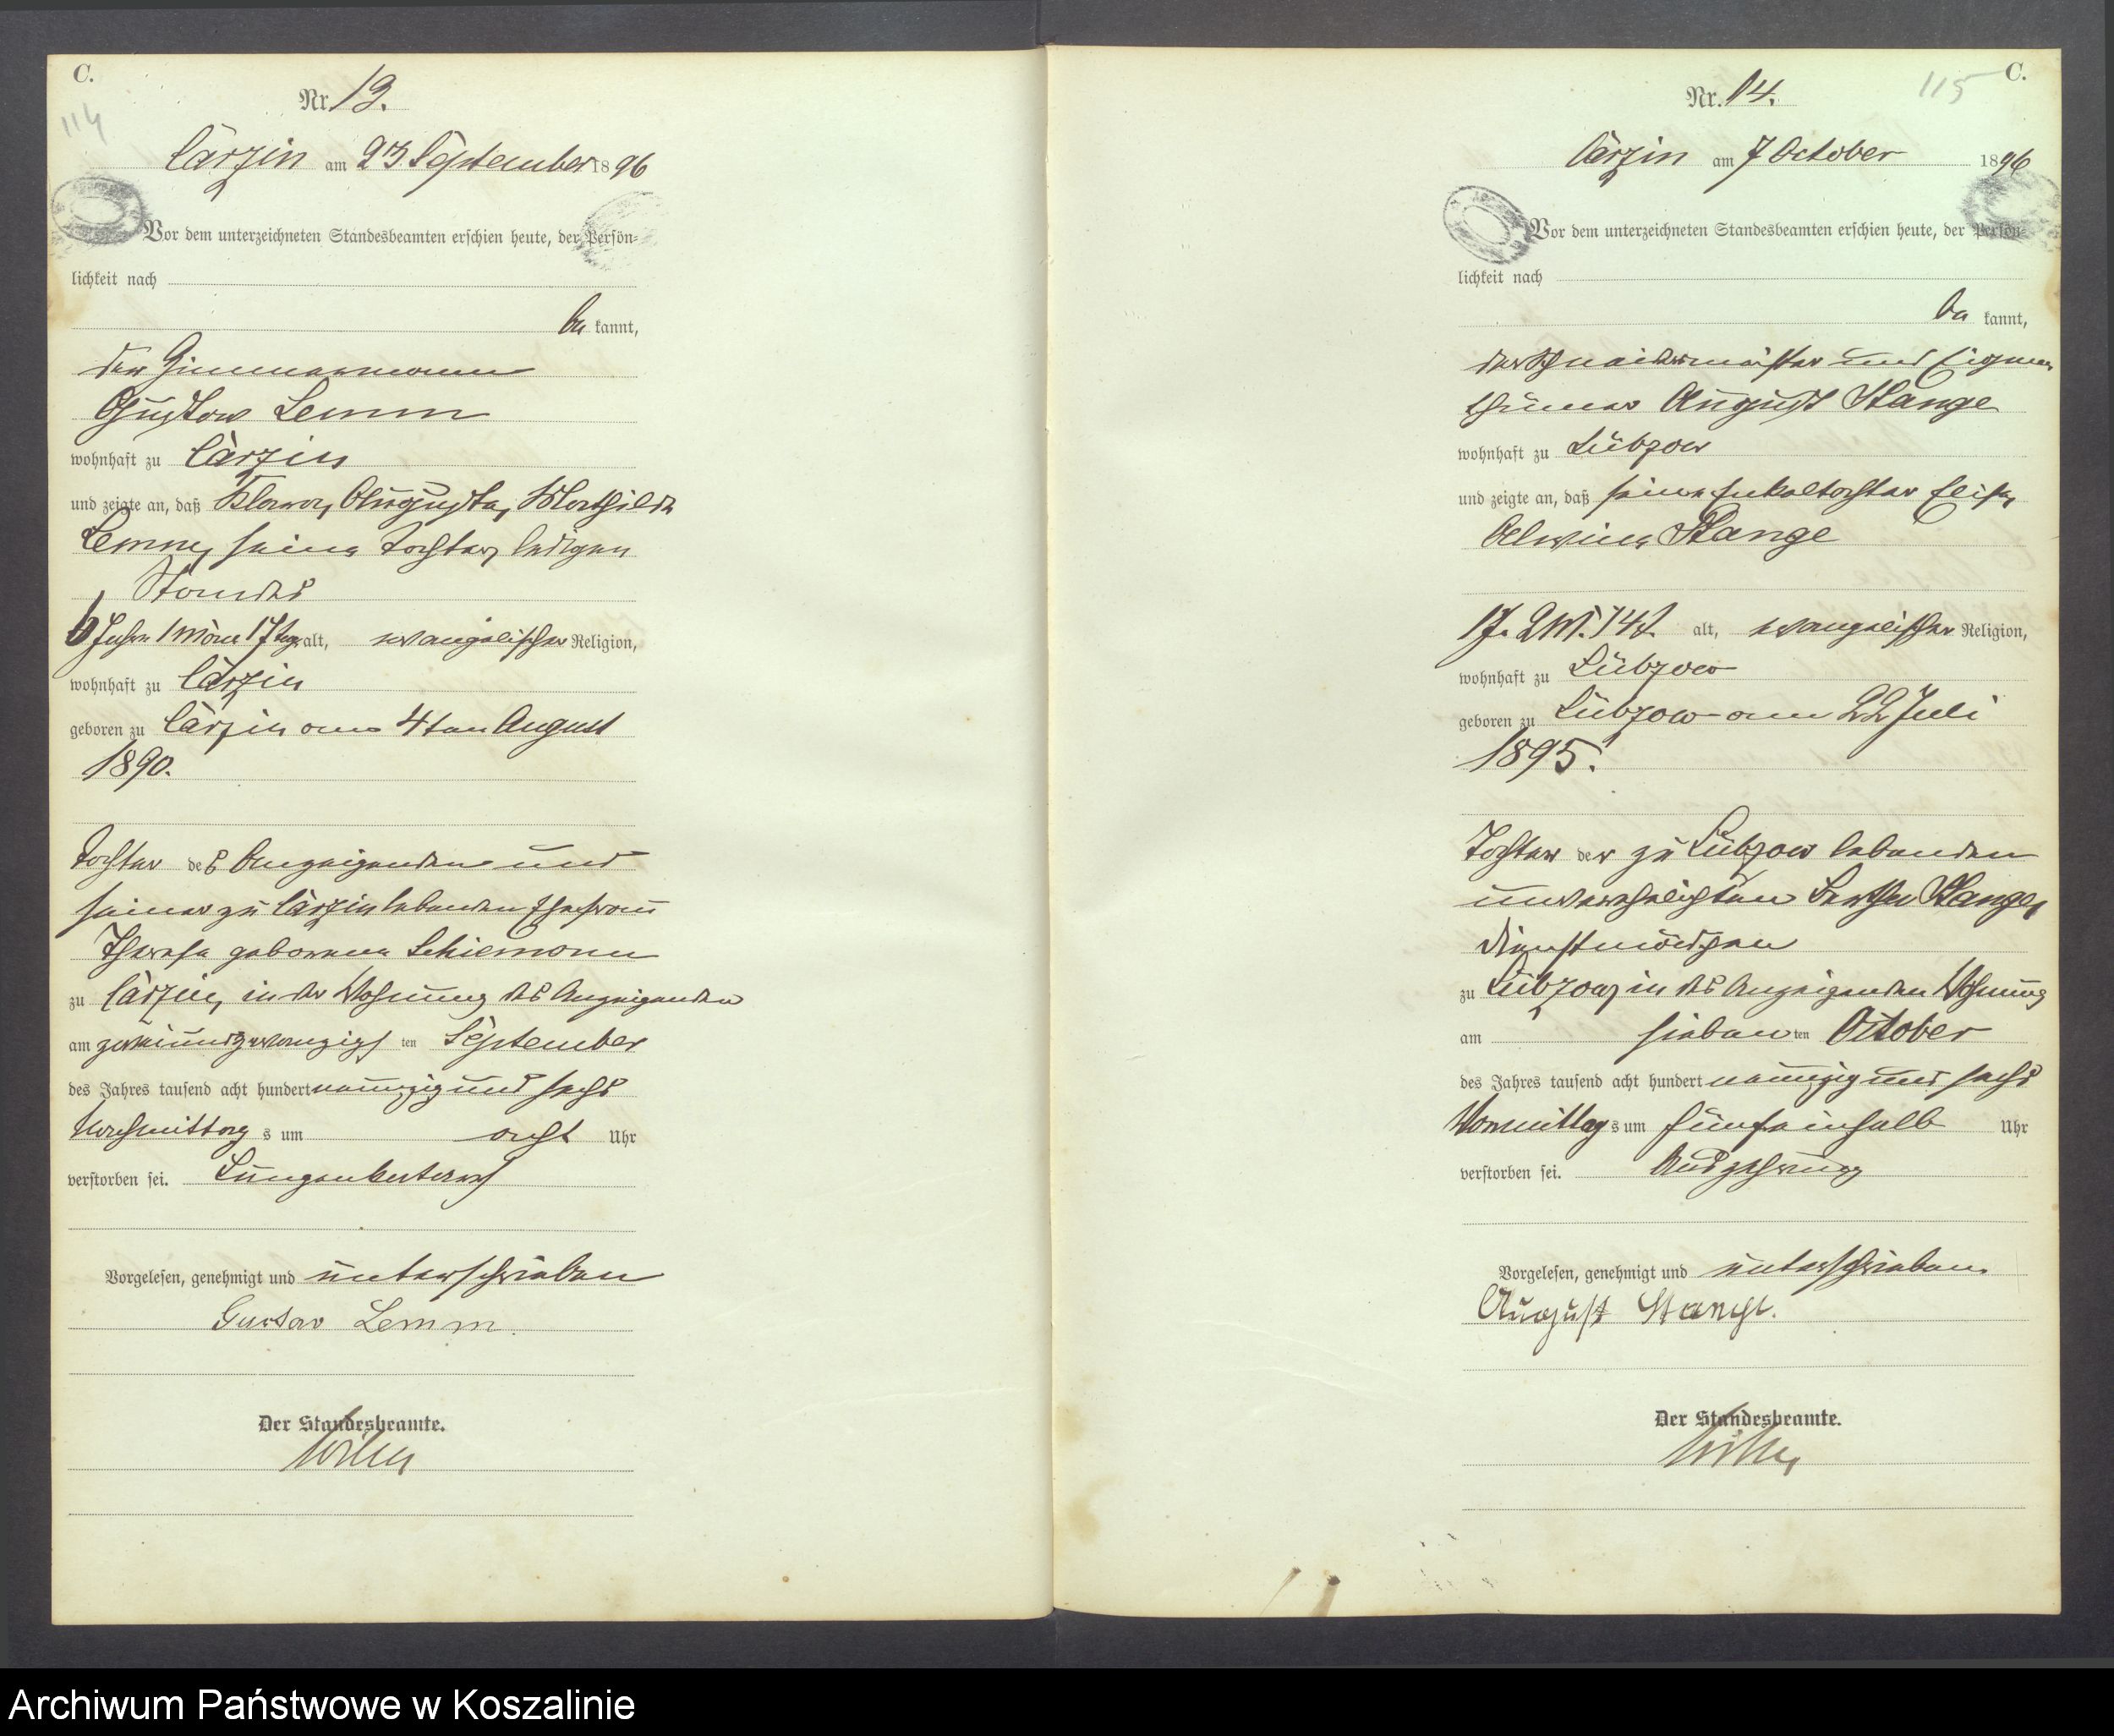 C.
114
Nr. 13.
Cärzin am 23 September 1896
Vor dem unterzeichneten Standesbeamten erschien heute, der Persön-
lichkeit nach
be kannt,
der Zimmermann
Gustav Lemm
wohnhaft zu Cärzin
und zeigte an, daß Klara, Augusta, Mathilde
Lemm, seine Tochter, ledigen
Standes
6 Jahre 1 Monat 17 Tage alt, evangelischer Religion,
wohnhaft zu Cärzin
geboren zu Cärzin am 4ten August
1890.
Tochter des Anzeigenden und
seiner zu Cärzin lebenden Ehefrau
Therese geborene Schiemann
zu Cärzin, in der Wohnung des Anzeigenden
am zweiundzwanzigsten September
des Jahres tausend acht hundert neunzig und sechs
Nachmittags um acht Uhr
verstorben sei. Lungenkatarrh
Vorgelesen, genehmigt und unterschrieben
Gustav Lemm.
Der Standesbeamte.
C.
115
Nr. 14.
Cärzin am 7 October 1896
Vor dem unterzeichneten Standesbeamten erschien heute, der Persön-
lichkeit nach
be kannt,
der Schneidermeister und Eigen-
thümer August Stange
wohnhaft zu Lübzow
und zeigte an, daß seine Enkeltochter Elise,
Alwine Stange
1 J. 2 M. 14 T. alt, evangelischer Religion,
wohnhaft zu Lübzow
geboren zu Lübzow am 22 Juli
1895.
Tochter der zu Lübzow lebenden
unverehelichten Bertha Stange,
Dienstmädchen
zu Lübzow, in des Anzeigenden Wohnung
am siebenten October
des Jahres tausend acht hundert neunzig und sechs
Vormittags um fünfeinhalb Uhr
verstorben sei. Auszehrung
Vorgelesen, genehmigt und unterschrieben.
August Stange.
Der Standesbeamte.
Archiwum Państwowe w Koszalinie